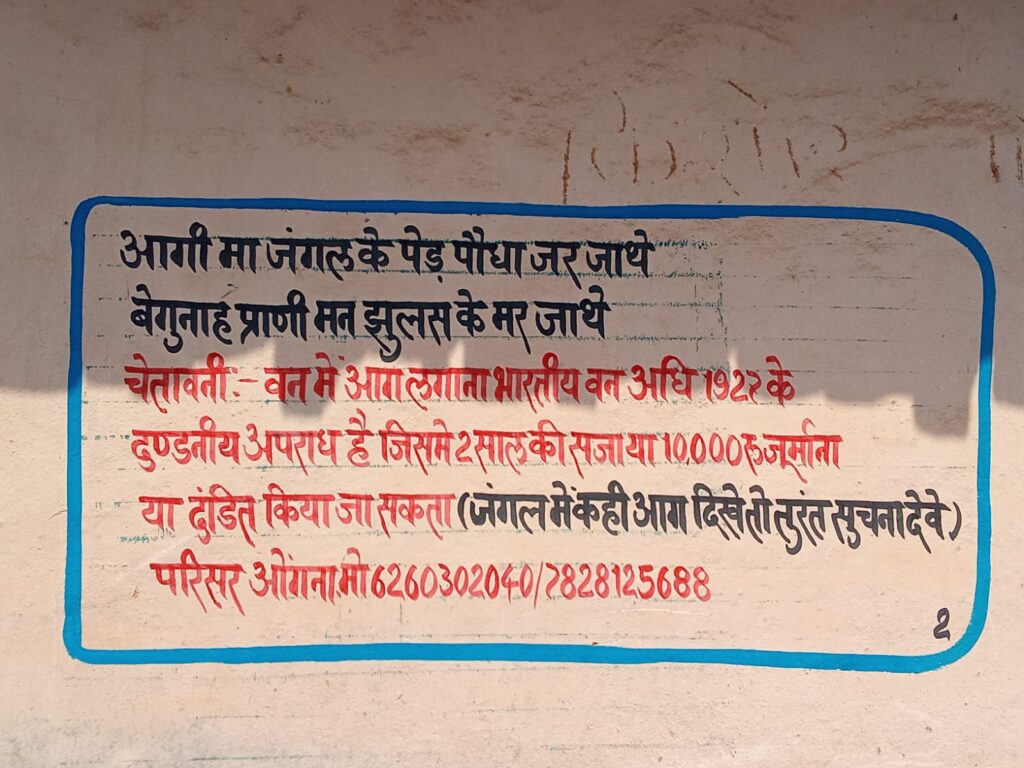 आगी मा जंगल के पेड़ पौधा जर जाथे
बेगुनाह प्राणी मन झुलस के मर जाथे
चेतावनी:- वन में आग लगाना भारतीय वन अधि 1927 के
दुण्डनीय अपराध है जिसमे 2 साल की सजा या 10,000 रू जूर्माना
या दुंडित किया जा सकता (जंगल में कही आग दिखे तो तुरंत सुचना देवे)
परिसर ओंगना. मो 6260302040/7828125688
2